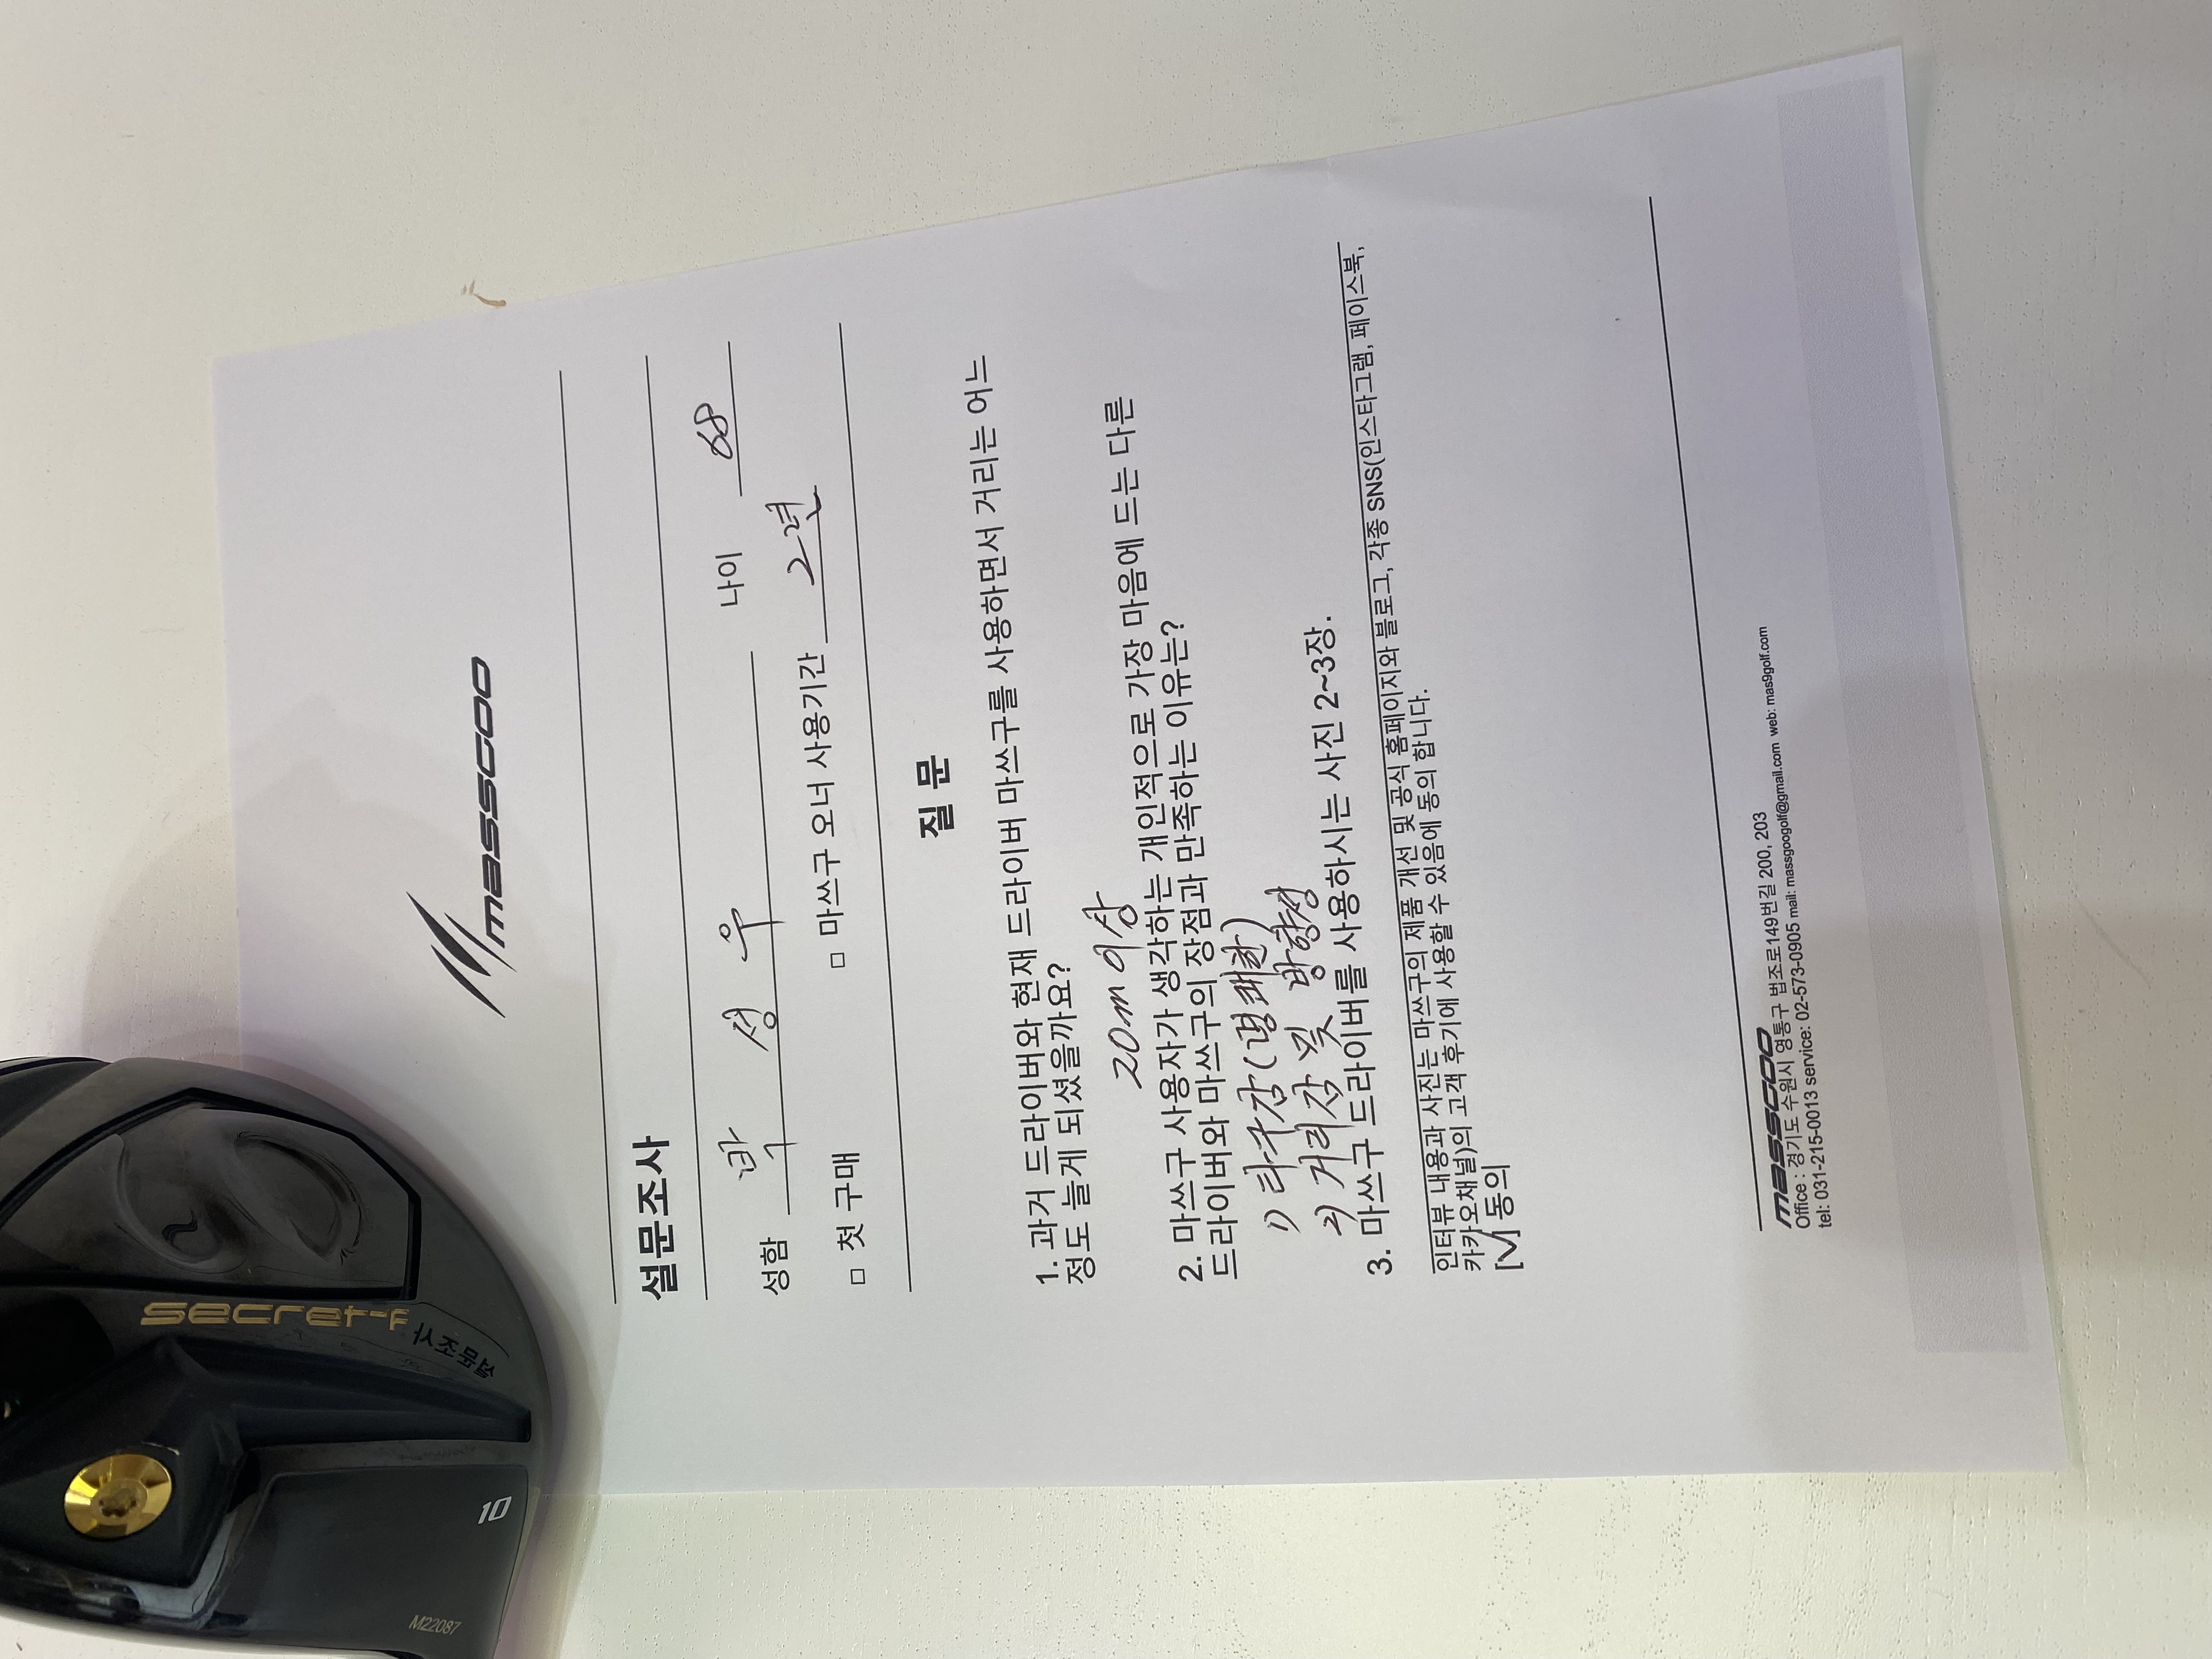 secret-f
M22087
10
massgoo
설문조사
성함 박 성 우 나이 68
□ 첫 구매 □ 마쓰구 오너 사용기간 2년
질 문
1. 과거 드라이버와 현재 드라이버 마쓰구를 사용하면서 거리는 어느
정도 늘게 되셨을까요?
20m 이상
2. 마쓰구 사용자가 생각하는 개인적으로 가장 마음에 드는 다른
드라이버와 마쓰구의 장점과 만족하는 이유는?
1) 타구감(경쾌한)
2) 거리감 및 방향성
3. 마쓰구 드라이버를 사용하시는 사진 2~3장.
인터뷰 내용과 사진는 마쓰구의 제품 개선 및 공식 홈페이지와 블로그, 각종 SNS(인스타그램, 페이스북,
카카오채널)의 고객 후기에 사용할 수 있음에 동의 합니다.
[V] 동의
massgoo
Office : 경기도 수원시 영통구 법조로149번길 200, 203
tel: 031-215-0013 service: 02-573-0905 mail: massgoogolf@gmail.com web: mas9golf.com